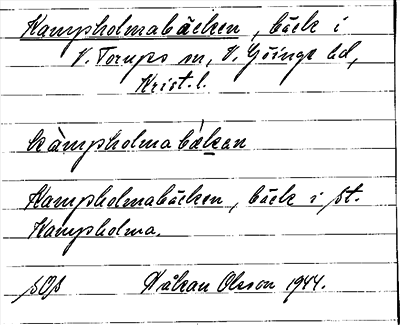 Kampholmabäcken, bäck i
V. Torups sn, V. Göinge hd,
Krist. l.
kàmpholmabǽkan
Kampholmabäcken, bäck i st.
Kampholma.
Håkan Olsson 1944.